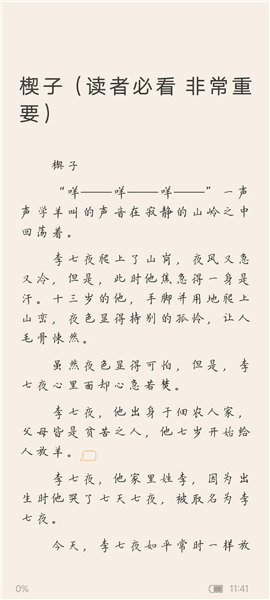 楔子（读者必看 非常重
要）
楔子
“咩——咩——咩——”一声
声学羊叫的声音在寂静的山岭之中
回荡着。
李七夜爬上了山岗，夜风又急
又冷，但是，此时他焦急得一身是
汗。十三岁的他，手脚并用地爬上
山峦，夜色显得特别的孤伶，让人
毛骨悚然。
虽然夜色显得可怕，但是，李
七夜心里面却心急若焚。
李七夜，他出身于佃农人家，
父母皆是贫苦之人，他七岁开始给
人放羊。
李七夜，他家里姓李，因为出
生时他哭了七天七夜，被取名为李
七夜。
今天，李七夜如平常时一样放
0%
11:41